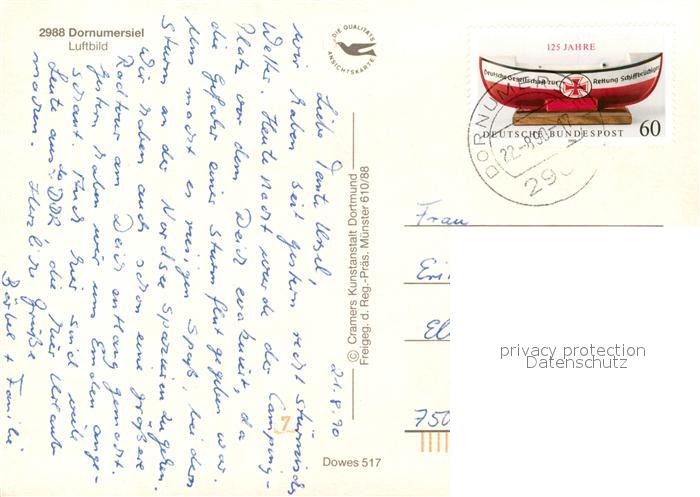 2988 Dornumersiel
Luftbild
DIE QUALITÄTS
ANSICHTSKARTE
21.8.90
Liebe Tante Ursel,
wir haben seit gestern recht stürmisches
Wetter. Heute Nacht wurde der Camping-
Platz vor dem Deich evakuiert, da
die Gefahr einer Sturmflut gegeben war.
Uns macht es riesigen Spaß, bei dem
Sturm an der Nordsee spazieren zu gehen.
Wir haben auch schon eine größere
Radtour am Deich entlang gemacht.
Gestern haben wir uns Emden ange-
schaut. Auch hier sind viele
Leute aus der DDR die hier Urlaub
machen.
Herzliche Grüße
Bärbel + Familie
© Cramers Kunstanstalt Dortmund
Freigeg. d. Reg.-Präs. Münster 610/88
7
Dowes 517
125 JAHRE
Deutsche Gesellschaft zur Rettung Schiffbrüchiger
DEUTSCHE BUNDESPOST 60
DORNUMER
22.-8.90
Frau
Eri
El
750
privacy protection
Datenschutz